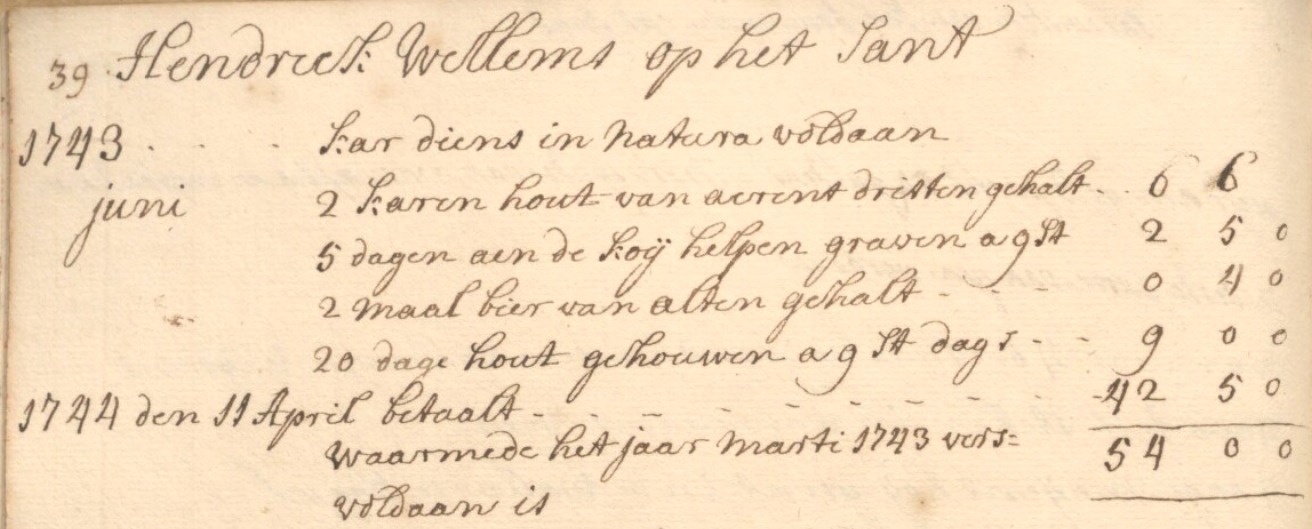 39 Hendrick Wellems op het Sant
1743 . . . kar diens in natura voldaan
juni 2 karen hout van aerent dritten gehalt . . 6 6
5 dagen aen de koÿ helpen graven a 9 st 2 5 0
2 maal bier van alten gehalt - - - 0 4 0
20 dage hout gehouwen a 9 st dags - - 9 0 0
1744 den 11 April betaalt - - - - - - - - 42 5 0
waarmede het jaar marti 1743 vers= 54 0 0
voldaan is